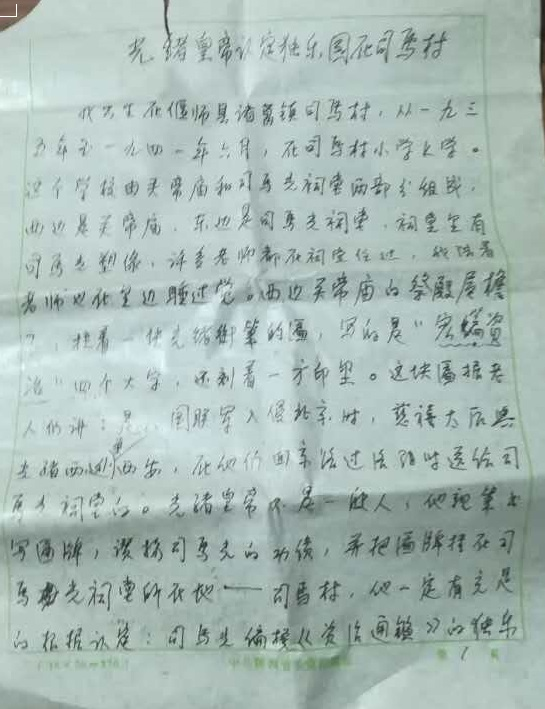 光绪皇帝认定独乐园在司马村
我出生在偃师县诸葛镇司马村，从一九三
五年至一九四一年六月，在司马村小学上学。
这个学校由关帝庙和司马光祠堂两部分组成，
西边是关帝庙，东边是司马光祠堂，祠堂里有
司马光塑像，许多老师都在祠堂住过，我陪着
老师也在里边睡过觉。西边关帝庙的祭殿屋檐
下，挂着一块光绪御笔的匾，写的是"宏编资
治"四个大字，还刻着一方印玺。这块匾据老
人们讲：是 国联军入侵北京时，慈禧太后与
光绪西逃西安，在他们回京路过洛阳时送给司
马光祠堂的。光绪皇帝不是一般人，他亲笔书
写匾牌，谈扬司马光的功绩，并把匾牌挂在司
马光祠堂所在地——司马村，他一定有充足
的根据认定：司马光编撰《资治通鉴》的独乐
第 1 页